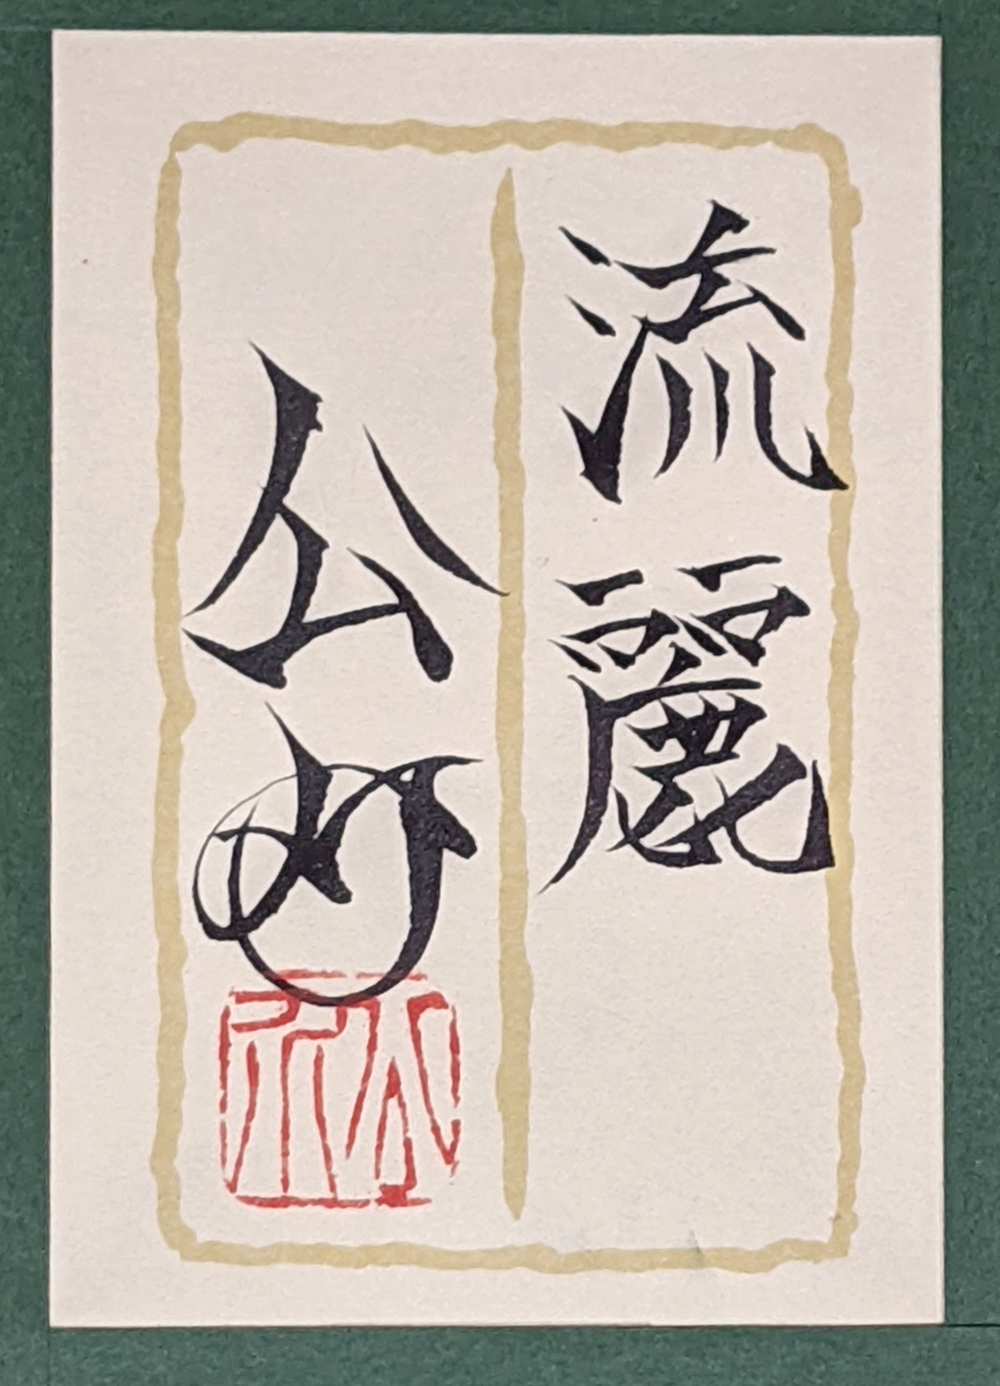 流麗
公め